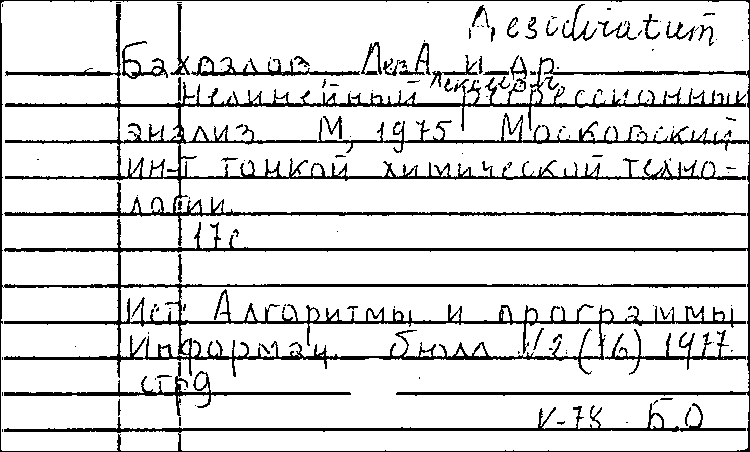 Desidiratum
Бахвалов Лев А. и др.
Нелинейный регрессионный
анализ М, 1975 Московский
ин-т тонкой химической техно-
логии.
17с
Ист: Алгоритмы и программы
Информац. бюлл №2(16) 1977
стр9
V-78 Б.О